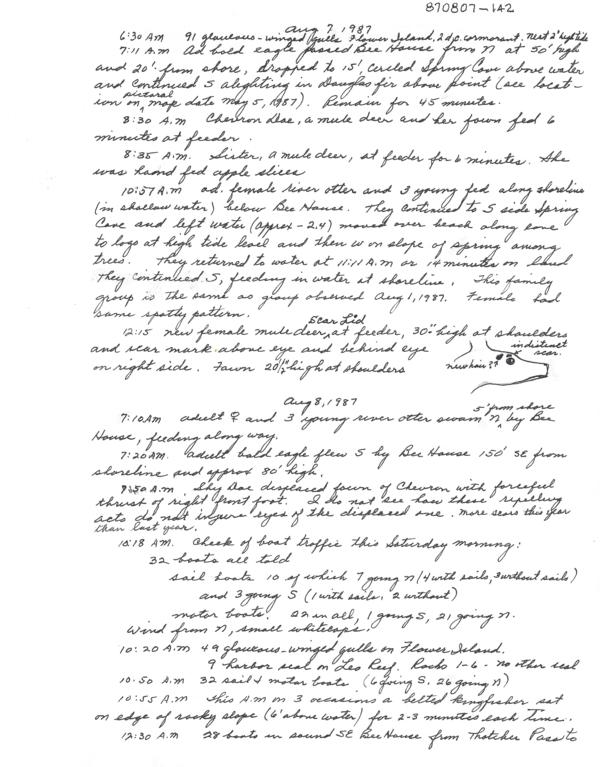 870807-1A2
Aug 7, 1987
6:30 AM 91 glaucous-winged gulls Flower Island. 2 d.c. cormorant. Next 2' high tide
7:11 A.M Ad bald eagle passed Bee House from N at 50' high
and 20' from shore, dropped to 15' circled Spring Cove above water
and continued S alighting in Douglas fir above point (see locat-
ion on pictorial map date May 5, 1987). Remain for 45 minutes.
8:30 A.M Chevron Doe, a mule deer and her fawn fed 6
minutes at feeder.
8:35 A.M. Sister, a mule deer, at feeder for 6 minutes. She
was hand fed apple slices
10:57 A.M ad. female river otter and 3 young fed along shoreline
(in shallow water) below Bee House. They continued to S side Spring
Cove and left water (approx - 2.4) moved over beach along cove
to logs at high tide level and then W on slope of spring among
trees. They returned to water at 11:11 A.M or 14 minutes on land
They continued S, feeding in water at shoreline. This family
group is the same as group observed Aug 1, 1987. Female had
same spotty pattern.
12:15 new female mule deer, Scar Lid at feeder, 30" high at shoulders
and scar mark above eye and behind eye
on right side. Fawn 20 1/2" high at shoulders
indistinct
scar.
new hair??
Aug 8, 1987
7:10 AM adult ♀ and 3 young river otter swam N 5' from shore by Bee
House, feeding along way.
7:20 AM. adult bald eagle flew S by Bee House 150' SE from
shoreline and approx 80' high.
9:50 A.M. Shy Doe displaced fawn of Chevron with forceful
thrust of right front foot. I do not see how these repelling
acts do not injure eyes of the displaced one. more scars this year
than last year.
10:18 AM. Check of boat traffic this Saturday morning:
32 boats all told
sail boats 10 of which 7 going N (4 with sails, 3 without sails)
and 3 going S (1 with sails, 2 without)
motor boats. 22 in all, 1 going S, 21 going N.
Wind from N, small whitecaps.
10:20 A.M 49 glaucous-winged gulls on Flower Island.
9 harbor seal on Leo Reef. Rocks 1-6 - no other seal
10:50 A.M 32 sail & motor boats (6 going S, 26 going N)
10:55 A.M This A.M on 3 occasions a belted kingfisher sat
on edge of rocky slope (6' above water) for 2-3 minutes each time.
12:30 A.M 28 boats in sound SE Bee House from Thatcher Pass to